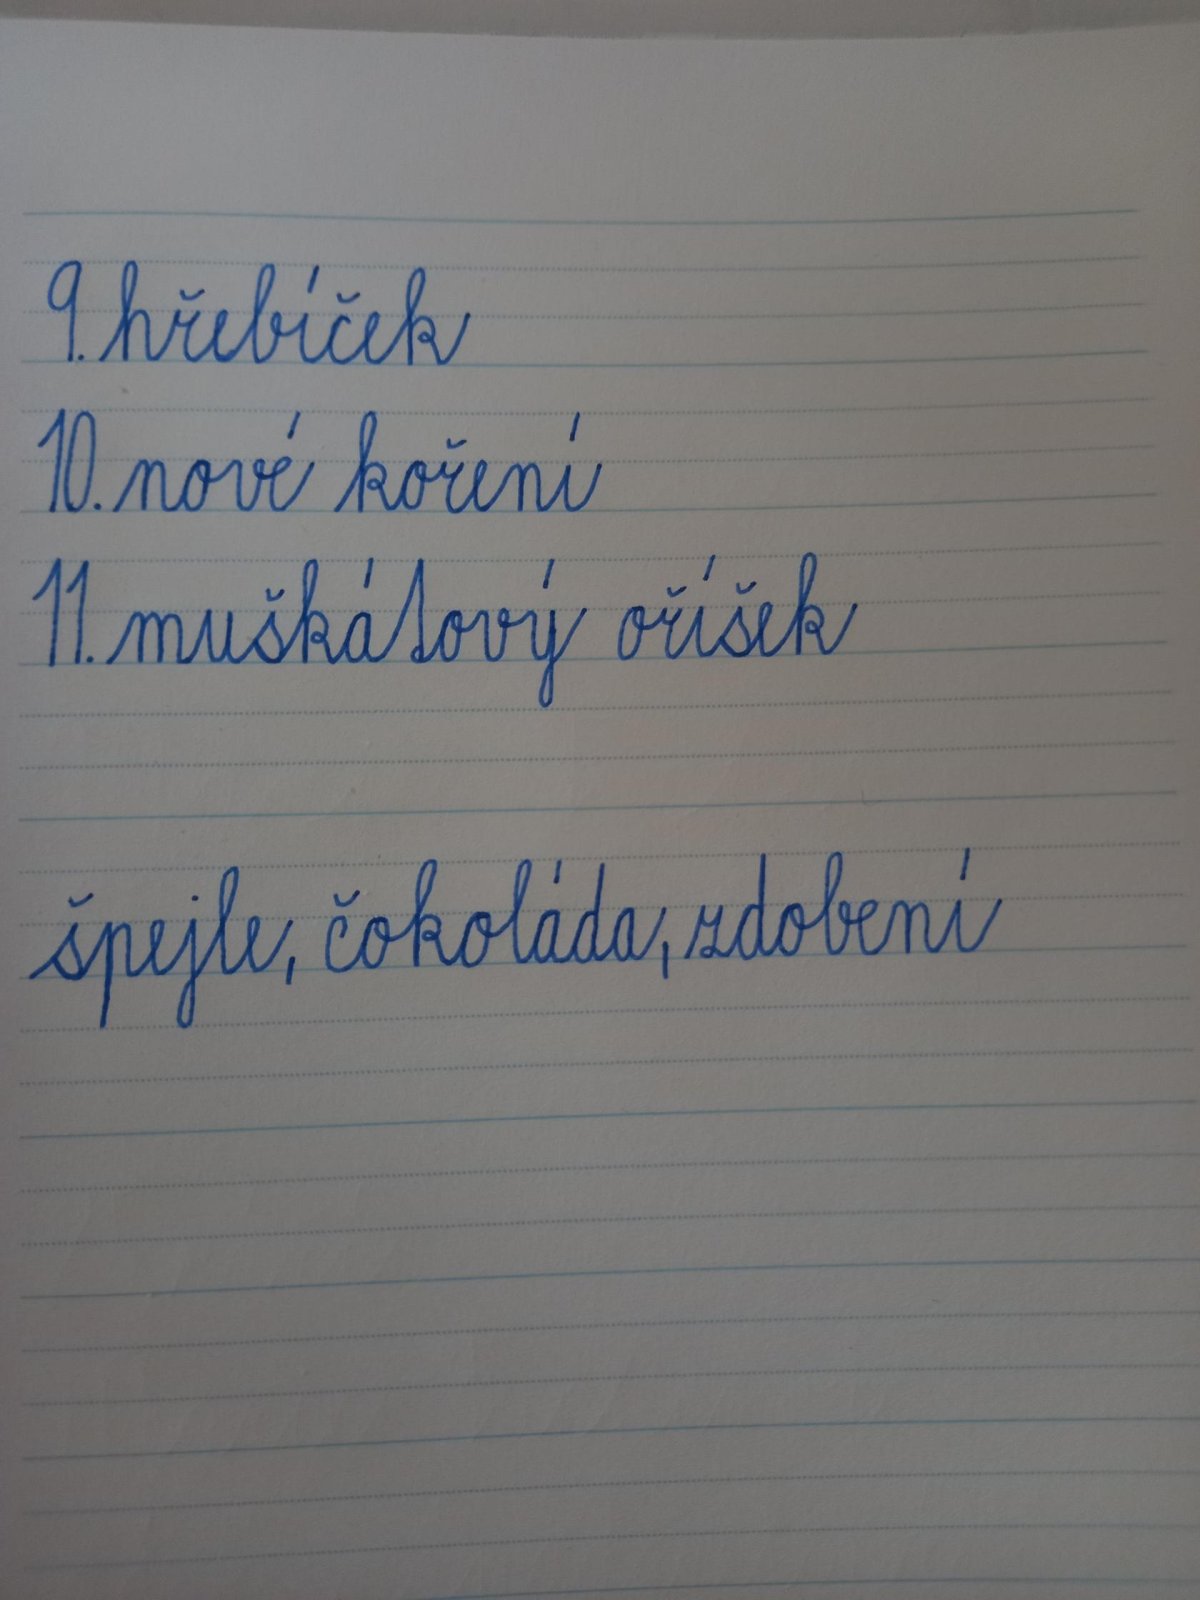 9. hřebíček
10. nové koření
11. muškátový oříšek
špejle, čokoláda, zdobení